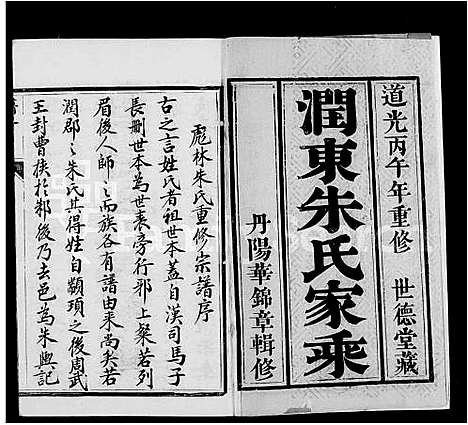 道光丙午年重修　世德堂藏
潤東朱氏家乘
丹陽華錦章輯修
彪林朱氏重修宗譜序
古之言姓氏者祖世本蓋自漢司馬子
長刪世本為世表旁行邪上粲若列
眉後人師之而族各有譜由来尚矣若
潤郡之朱氏其得姓自顓頊之後周武
王封曹挟於邾後乃去邑為朱與記